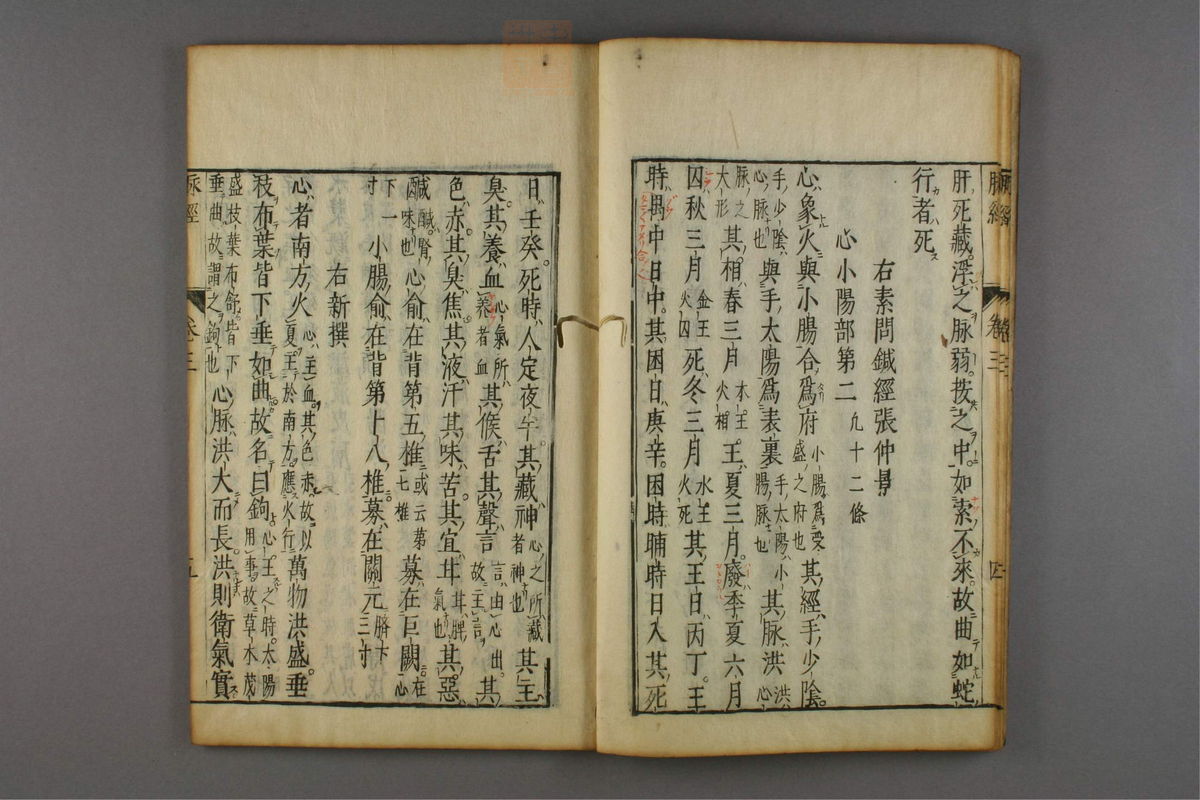 肝死藏浮之脉弱按之中如索不來故曲如蛇
行者死
右素問鍼經張仲景
心小陽部第二 九十二條
心象火與小腸合爲府 小腸爲受盛之府也 其經手少陰
手少陰心脉也 與手太陽爲表裏 手太陽小腸脉也 其脉洪 洪心
脉之大形 其相春三月 木王火相 王夏三月廢季夏六月
囚秋三月 金王火囚 死冬三月 水王火死 其王日丙丁王
時禺中日中其困日庚辛困時晡時日入其死
日壬癸死時人定夜半其藏神 心之所藏者神也 其主
臭其養血 心氣所養者血 其候舌其聲言 言由心出故主言 其
色赤其臭焦其液汗其味苦其宜甘 甘脾氣也 其惡
鹹 鹹腎味也 心俞在背第五椎 或云第七椎 募在巨闕 在心
下一寸 小腸俞在背第十八椎募在關元 臍下三寸
右新撰
心者南方火 心主血其色赤故以夏王於南方應火行 萬物洪盛垂
枝布葉皆下垂如曲故名曰鉤 心王之時太陽用事故草木茂
盛枝葉布舒皆下垂曲故謂之鉤也 心脉洪大而長洪則衛氣實
脉經
卷三
四
脉經
卷三
五